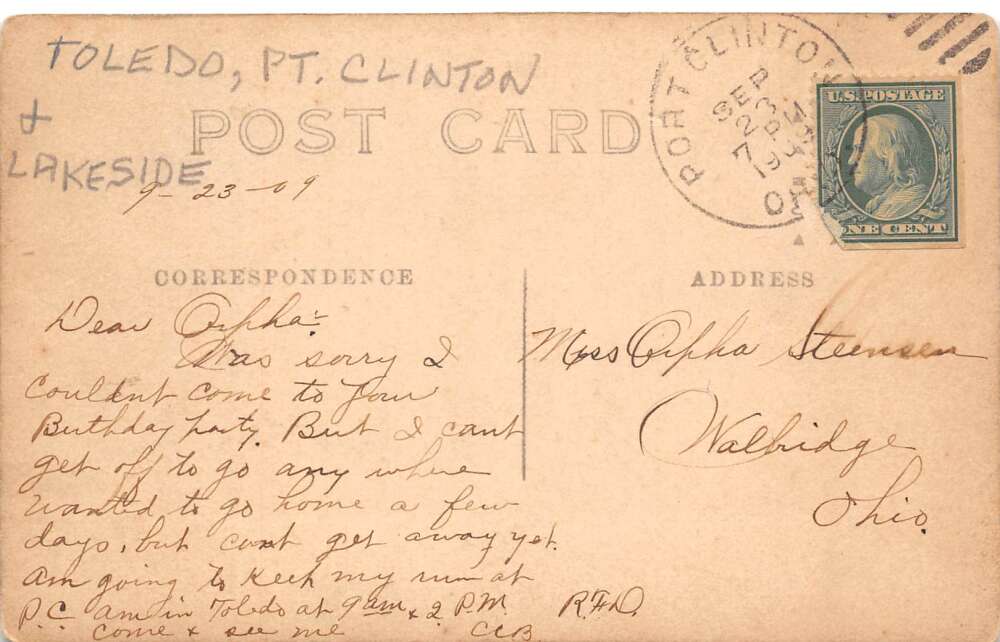 TOLEDO, PT. CLINTON
+
LAKESIDE
POST CARD
9-23-09
PORT CLINTON
SEP
23
7 PM
OHIO
U.S. POSTAGE
ONE CENT
CORRESPONDENCE
Dear Orpha:-
Was sorry I
couldnt come to your
Birthday party. But I cant
get off to go any where
wanted to go home a few
days, but cant get away yet.
am going to keep my run at
P.C. am in Toledo at 9 am & 2 P.M.
come & see me CCB
ADDRESS
Miss Orpha Steensen
Walbridge
Ohio.
R.F.D.